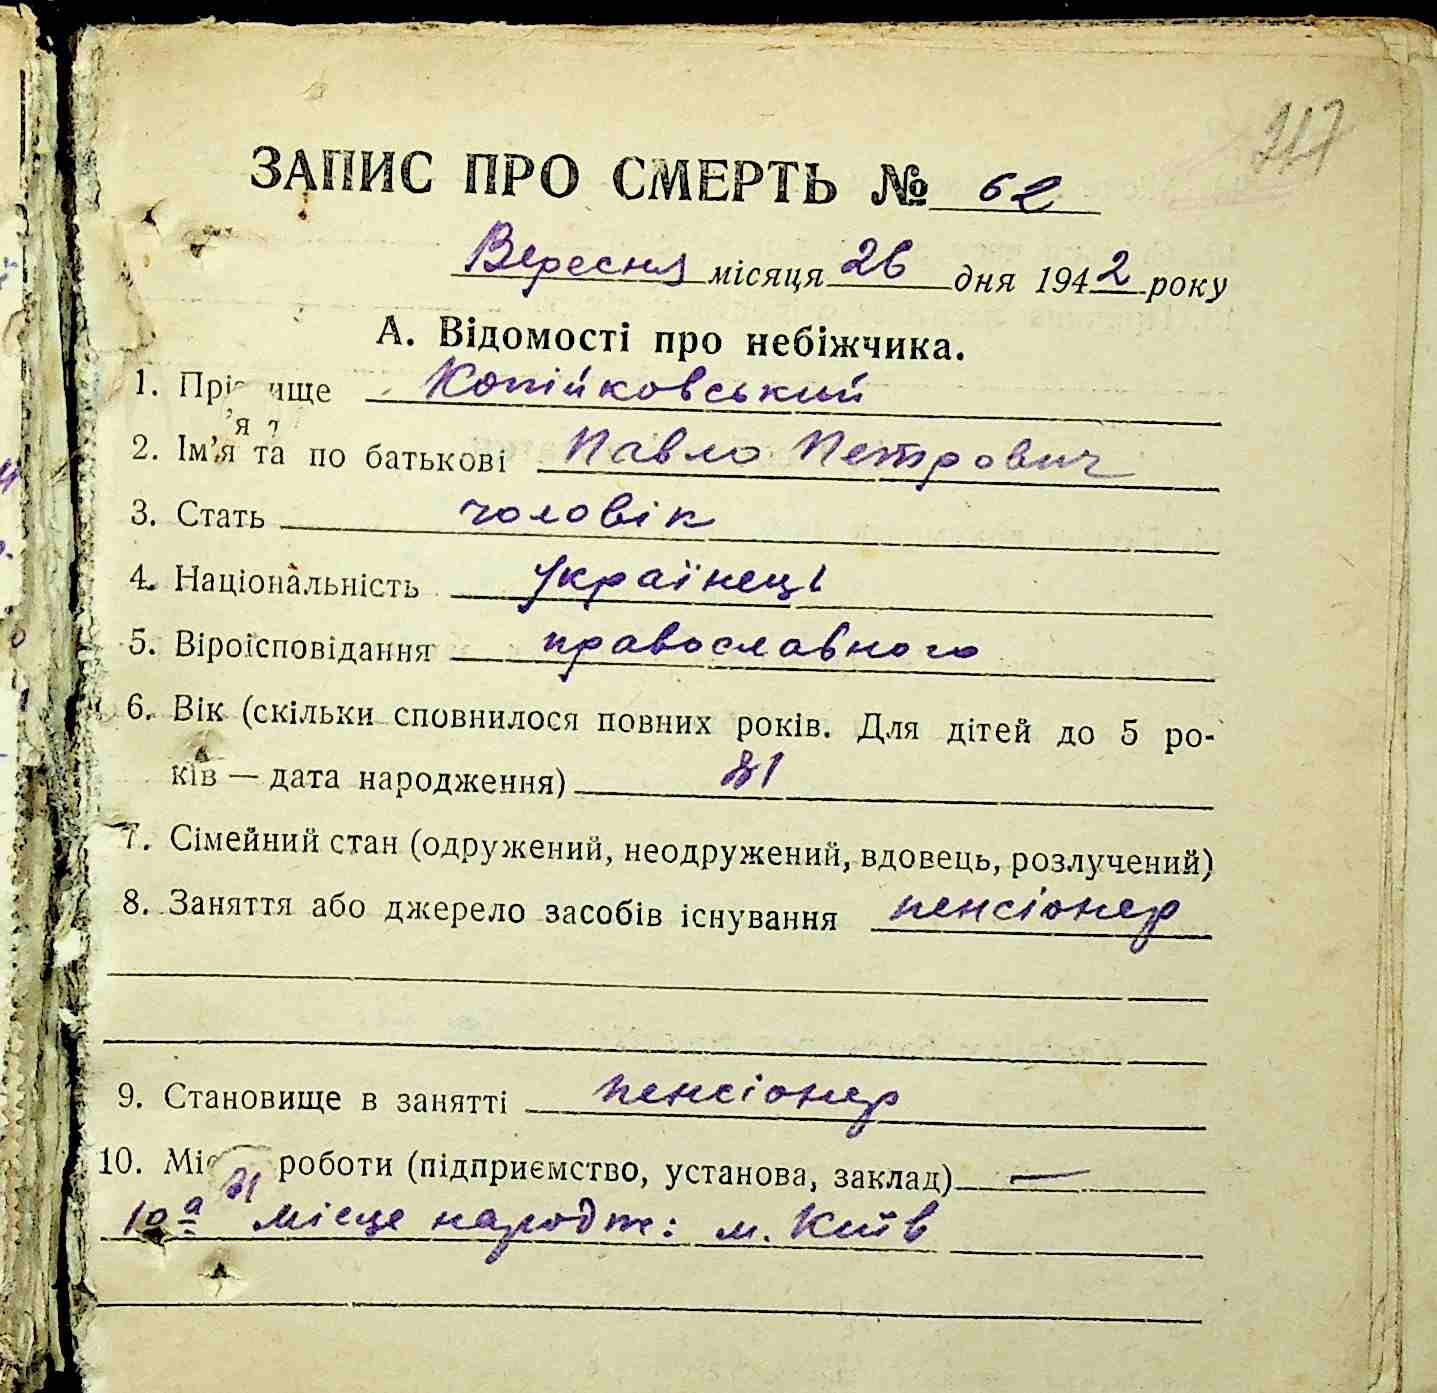 217
ЗАПИС ПРО СМЕРТЬ № 62
Вересня місяця 26 дня 1942 року
А. Відомості про небіжчика.
1. Прізвище Копійковський
2. Ім'я та по батькові Павло Петрович
3. Стать чоловік
4. Національність Українець
5. Віроісповідання православного
6. Вік (скільки сповнилося повних років. Для дітей до 5 ро-
ків — дата народження) 81
7. Сімейний стан (одружений, неодружений, вдовець, розлучений)
8. Заняття або джерело засобів існування пенсіонер
9. Становище в занятті пенсіонер
10. Місце роботи (підприємство, установа, заклад) —
10а Місце народж: м. Київ